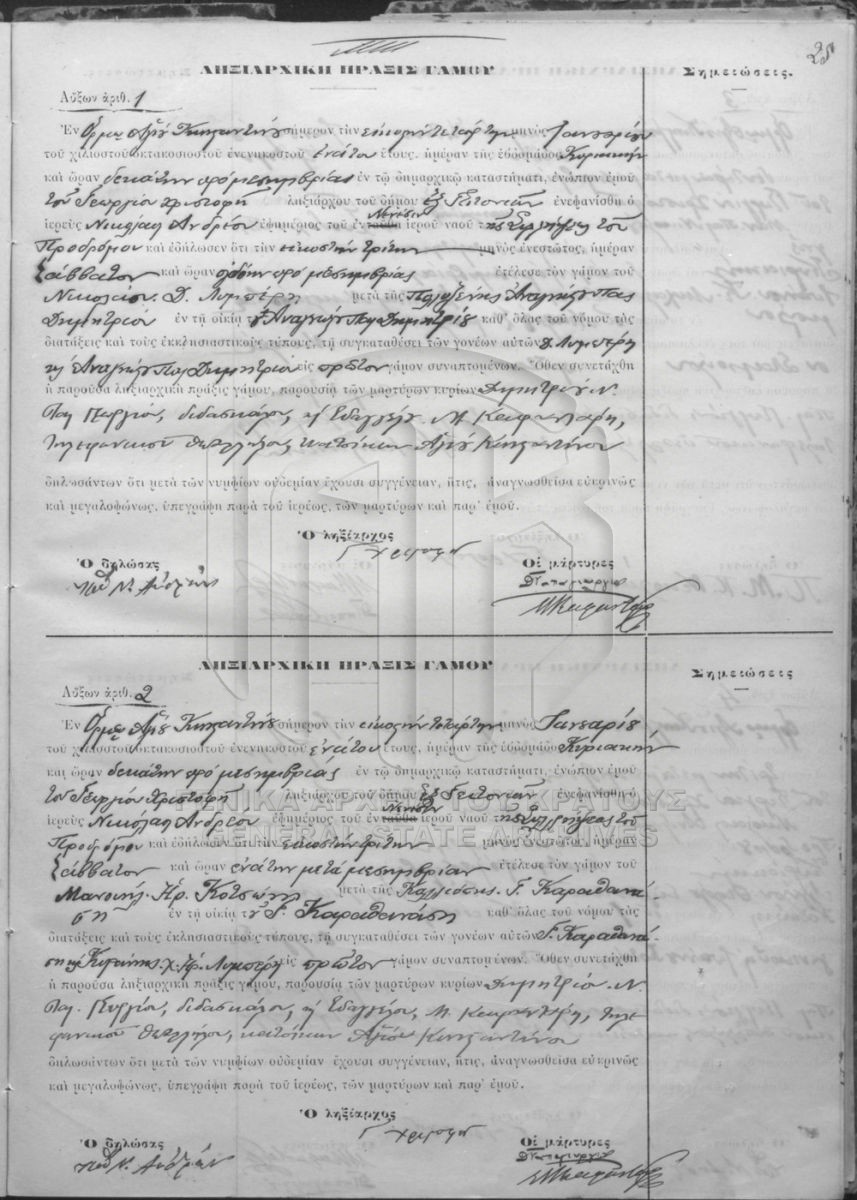 28
ΛΗΞΙΑΡΧΙΚΗ ΠΡΑΞΙΣ ΓΑΜΟΥ
Σημειώσεις.
Αὔξων ἀριθ. 1
Ἐν Ἁγίου Κωνσταντίνου σήμερον τὴν εἰκοστὴν τετάρτην μηνὸς Ἰανουαρίου
τοῦ χιλιοστοῦ ὀκτακοσιοστοῦ ἐνενηκοστοῦ ἐνάτου ἔτους, ἡμέραν τῆς ἑβδομάδος Κυριακὴν
καὶ ὥραν δεκάτην πρὸ μεσημβρίας ἐν τῷ δημαρχικῷ καταστήματι, ἐνώπιον ἐμοῦ
τοῦ Γεωργίου Χριστοφῆ ληξιάρχου τοῦ δήμου ἐξ Γειτονιῶν ἐνεφανίσθη ὁ
ἱερεὺς Νικόλαος Ἀνδρέου ἐφημέριος τοῦ ἐνταῦθα ἱεροῦ ναοῦ τῆς Συλλήψεως τοῦ
Προδρόμου καὶ ἐδήλωσεν ὅτι τὴν εἰκοστὴν τρίτην μηνὸς ἐνεστῶτος, ἡμέραν
Σάββατον καὶ ὥραν ὀγδόην πρὸ μεσημβρίας ἐτέλεσε τὸν γάμον τοῦ
Νικολάου Δ. Λυμπέρη μετὰ τῆς Πολυξένης Ἀναγνώστου Παπα
Δημητρίου ἐν τῇ οἰκίᾳ τοῦ Ἀναγνώστου Παπα Δημητρίου καθ' ὅλας τοῦ νόμου τὰς
διατάξεις καὶ τοὺς ἐκκλησιαστικοὺς τύπους, τῇ συγκαταθέσει τῶν γονέων αὐτῶν Δ. Λυμπέρη
καὶ Ἀναγνώστου Παπα Δημητρίου εἰς πρῶτον γάμον συναπτομένων. Ὅθεν συνετάχθη
ἡ παροῦσα ληξιαρχικὴ πρᾶξις γάμου, παρουσίᾳ τῶν μαρτύρων κυρίων Δημητρίου Ν.
Παπα Γεωργίου, διδασκάλου, καὶ Εὐαγγέλου Μ. Καφαντάρη,
τηλεφωνικοῦ ὑπαλλήλου, κατοίκων Ἁγίου Κωνσταντίνου
δηλωσάντων ὅτι μετὰ τῶν νυμφίων οὐδεμίαν ἔχουσι συγγένειαν, ἥτις, ἀναγνωσθεῖσα εὐκρινῶς
καὶ μεγαλοφώνως, ὑπεγράφη παρὰ τοῦ ἱερέως, τῶν μαρτύρων καὶ παρ' ἐμοῦ.
Ὁ ληξίαρχος
Γ Χριστοφῆ
Ὁ δηλώσας
Οἱ μάρτυρες
παπᾶ Ν. Ἀνδρέου
Δ Παπαγεωργίου
ΛΗΞΙΑΡΧΙΚΗ ΠΡΑΞΙΣ ΓΑΜΟΥ
Σημειώσεις
Αὔξων ἀριθ. 2
Ἐν Ἁγίου Κωνσταντίνου σήμερον τὴν εἰκοστὴν τετάρτην μηνὸς Ἰανουαρίου
τοῦ χιλιοστοῦ ὀκτακοσιοστοῦ ἐνενηκοστοῦ ἐνάτου ἔτους, ἡμέραν τῆς ἑβδομάδος Κυριακὴν
καὶ ὥραν δεκάτην πρὸ μεσημβρίας ἐν τῷ δημαρχικῷ καταστήματι, ἐνώπιον ἐμοῦ
τοῦ Γεωργίου Χριστοφῆ ληξιάρχου τοῦ δήμου ἐξ Γειτονιῶν ἐνεφανίσθη ὁ
ἱερεὺς Νικόλαος Ἀνδρέου ἐφημέριος τοῦ ἐνταῦθα ἱεροῦ ναοῦ τῆς Συλλήψεως τοῦ
ΓΕΝΙΚΑ ΑΡΧΕΙΑ ΤΟΥ ΚΡΑΤΟΥΣ
GENERAL STATE ARCHIVES
Προδρόμου καὶ ἐδήλωσεν ὅτι τὴν εἰκοστὴν τρίτην μηνὸς ἐνεστῶτος, ἡμέραν
Σάββατον καὶ ὥραν ἐνάτην μετὰ μεσημβρίαν ἐτέλεσε τὸν γάμον τοῦ
Κρ. Κοτσώνη μετὰ τῆς Καλλιόπης Γ. Καραθανά-
ση ἐν τῇ οἰκίᾳ τοῦ Γ. Καραθανάση καθ' ὅλας τοῦ νόμου τὰς
διατάξεις καὶ τοὺς ἐκκλησιαστικοὺς τύπους, τῇ συγκαταθέσει τῶν γονέων αὐτῶν Γ. Καραθανά-
ση καὶ Λυμπέρη εἰς πρῶτον γάμον συναπτομένων. Ὅθεν συνετάχθη
ἡ παροῦσα ληξιαρχικὴ πρᾶξις γάμου, παρουσίᾳ τῶν μαρτύρων κυρίων Δημητρίου Ν.
Παπ. Γεωργίου, διδασκάλου, καὶ Εὐαγγέλου Μ. Καφαντάρη, τηλε-
φωνικοῦ ὑπαλλήλου, κατοίκων Ἁγίου Κωνσταντίνου
δηλωσάντων ὅτι μετὰ τῶν νυμφίων οὐδεμίαν ἔχουσι συγγένειαν, ἥτις, ἀναγνωσθεῖσα εὐκρινῶς
καὶ μεγαλοφώνως, ὑπεγράφη παρὰ τοῦ ἱερέως, τῶν μαρτύρων καὶ παρ' ἐμοῦ.
Ὁ ληξίαρχος
Γ Χριστοφῆ
Ὁ δηλώσας
Οἱ μάρτυρες
παπᾶ Ν. Ἀνδρέου
Δ Παπαγεωργίου